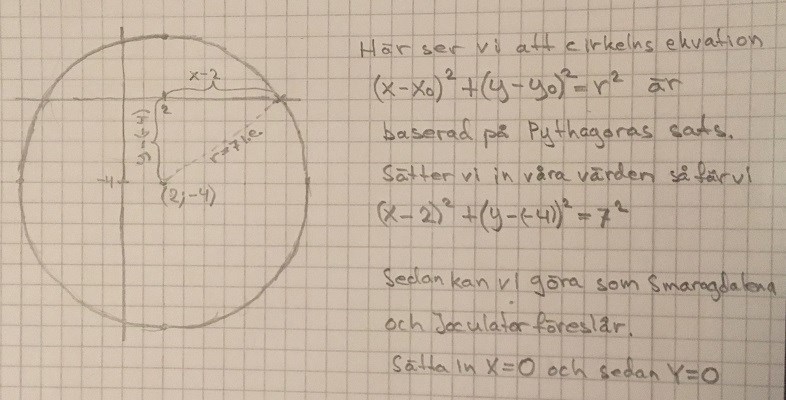 x-2
2
y-(-4)
r=7 l.e
-4
(2,-4)
Här ser vi att cirkelns ekvation
(x-x₀)² + (y-y₀)² = r² är
baserad på Pythagoras sats.
Sätter vi in våra värden så får vi
(x-2)² + (y-(-4))² = 7²
Sedan kan vi göra som Smaragdalena
och Joculator föreslår.
Sätta in X=0 och sedan Y=0